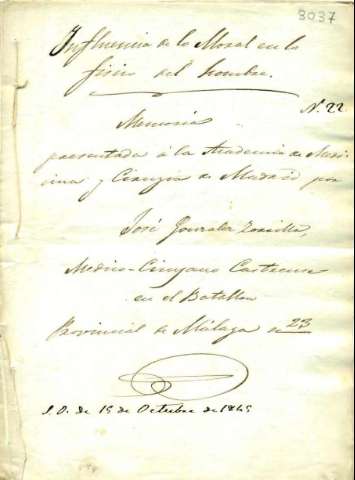 3037
Influencia de lo Moral en lo
fisico del hombre.
N. 22
Memoria
presentada á la Academia de Medi-
cina y Cirugia de Madrid por
José Gonzalez Zorrilla,
Medico-Cirujano Castrense
en el Batallon
Provincial de Málaga nº 23
S.O. de 15 de Octubre de 1845